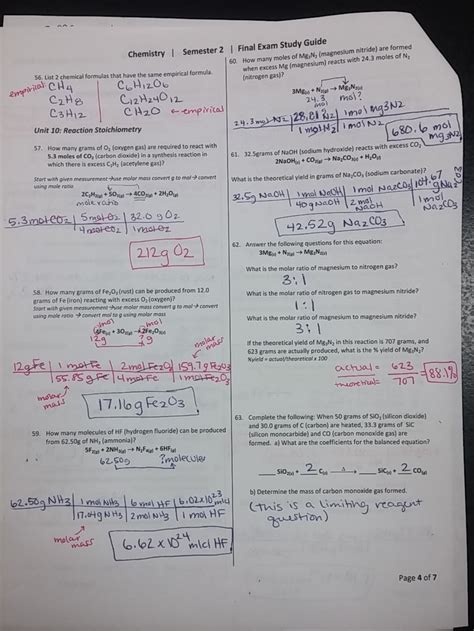 Chemistry | Semester 2 | Final Exam Study Guide
56. List 2 chemical formulas that have the same empirical formula.
empirical CH4 C6H12O6
C2H8 C12H24O12
C3H12 CH2O ← empirical
Unit 10: Reaction Stoichiometry
57. How many grams of O2 (oxygen gas) are required to react with
5.3 moles of CO2 (carbon dioxide) in a synthesis reaction in
which there is excess C2H2 (acetylene gas)?
Start with given measurement →use molar mass convert g to mol → convert
using mole ratio
2C2H2(g) + 5O2(g) → 4CO2(g) + 2H2O(g)
mole ratio
5.3 mol CO2 | 5 mol O2 | 32.0 g O2
4 mol CO2 | 1 mol O2
212 g O2
58. How many grams of Fe2O3 (rust) can be produced from 12.0
grams of Fe (iron) reacting with excess O2 (oxygen)?
Start with given measurement →use molar mass convert g to mol → convert
using mole ratio → convert mol to g using molar mass
mol mol
4Fe(s) + 3O2(g) → 2Fe2O3(s)
12g ? g
12g Fe | 1 mol Fe | 2 mol Fe2O3 | 159.7g Fe2O3
55.85 g Fe | 4 mol Fe | 1 mol Fe2O3
molar
mass
17.16 g Fe2O3
59. How many molecules of HF (hydrogen fluoride) can be produced
from 62.50g of NH3 (ammonia)?
5F2(g) + 2NH3(g) → N2F4(g) + 6HF(g)
62.50g ? molecules
62.50g NH3 | 1 mol NH3 | 6 mol HF | 6.02x10^23 mlcl
17.04g NH3 | 2 mol NH3 | 1 mol HF
molar
mass
6.62 x 10^24 mlcl HF
60. How many moles of Mg3N2 (magnesium nitride) are formed
when excess Mg (magnesium) reacts with 24.3 moles of N2
(nitrogen gas)?
3Mg(s) + N2(g) → Mg3N2(s)
24.3 mol?
24.3 mol N2 | 28.01 | 1 mol Mg3N2
1 mol N2 | 1 mol N2
680.6 mol
mg3N2
61. 32.5grams of NaOH (sodium hydroxide) reacts with excess CO2
2NaOH(s) + CO2(g) → Na2CO3(s) + H2O(l)
What is the theoretical yield in grams of Na2CO3 (sodium carbonate)?
32.5g NaOH | 1 mol NaOH | 1 mol Na2CO3 | 104.67
40 g NaOH | 2 mol NaOH | 1 mol Na2CO3
42.52g Na2CO3
62. Answer the following questions for this equation:
3Mg(s) + N2(g) → Mg3N2(s)
What is the molar ratio of magnesium to nitrogen gas?
3:1
What is the molar ratio of nitrogen gas to magnesium nitride?
1:1
What is the molar ratio of magnesium to magnesium nitride?
3:1
If the theoretical yield of Mg3N2 in this reaction is 707 grams, and
623 grams are actually produced, what is the % yield of Mg3N2?
%yield = actual/theoretical x 100
actual = 623
theoretical= 707
= 88.1%
63. Complete the following: When 50 grams of SiO2 (silicon dioxide)
and 30.0 grams of C (carbon) are heated, 33.3 grams of SiC
(silicon monocarbide) and CO (carbon monoxide gas) are
formed. a) What are the coefficients for the balanced equation?
___SiO2(s) + 2 C(s) → ___SiC(s) + 2 CO(g)
b) Determine the mass of carbon monoxide gas formed.
(this is a limiting reagent
question)
Page 4 of 7